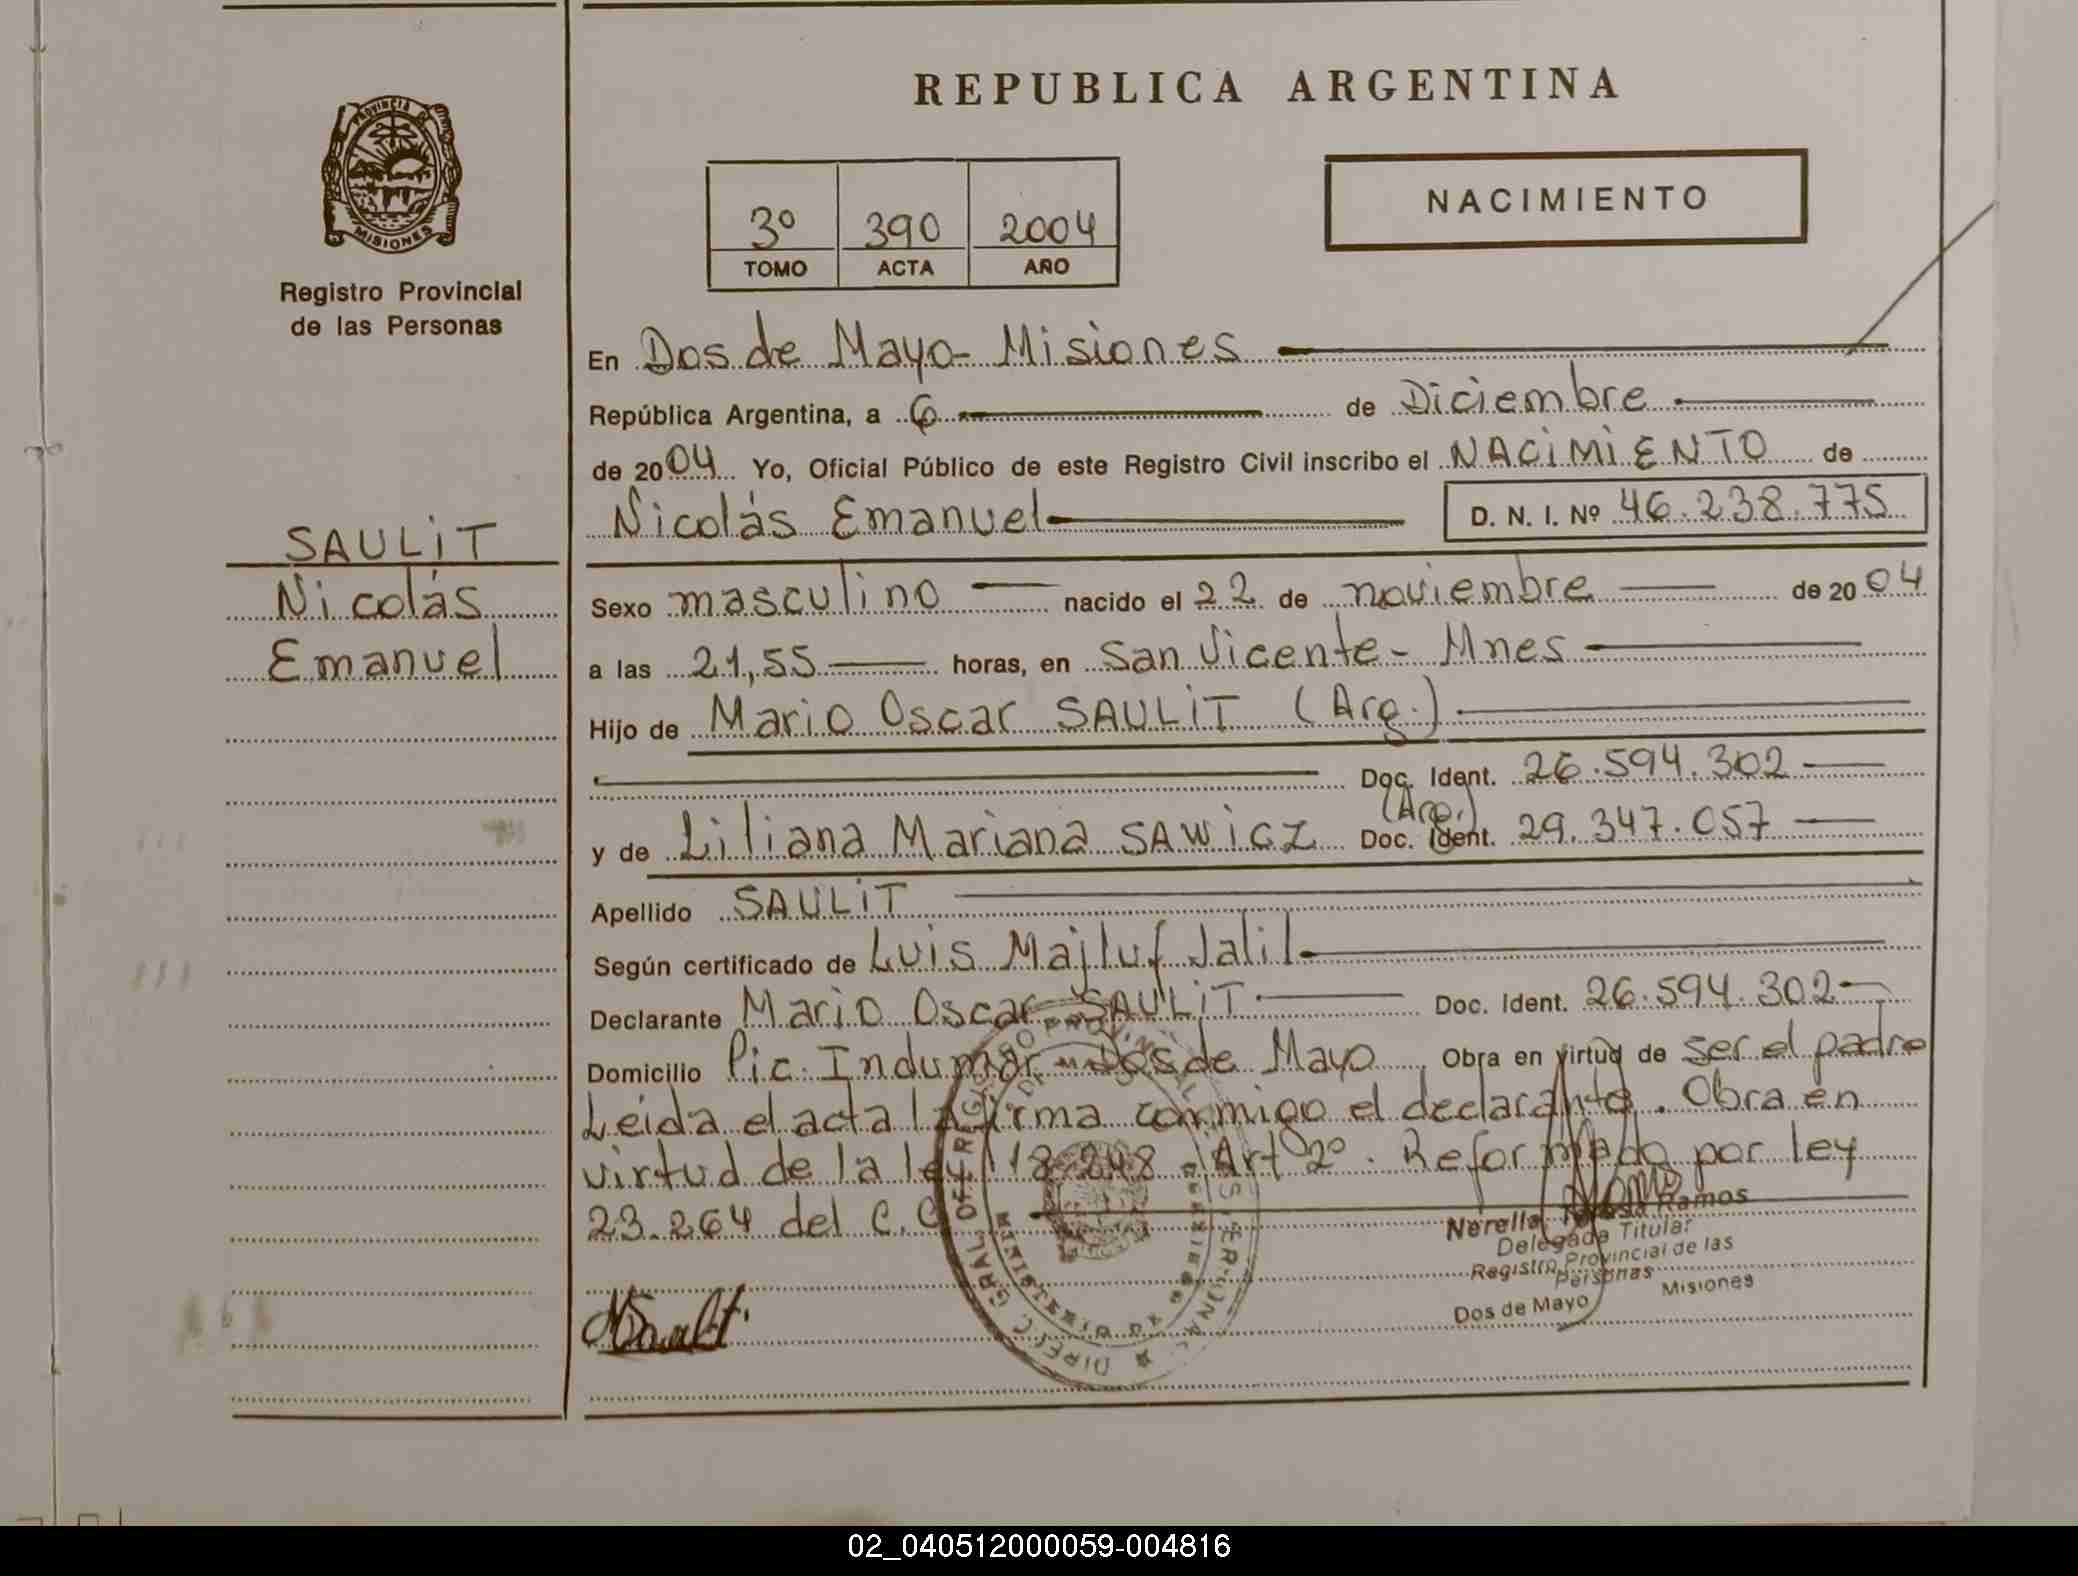 REPUBLICA ARGENTINA
PROVINCIA DE
MISIONES
Registro Provincial
de las Personas
3º 390 2004
TOMO ACTA AÑO
NACIMIENTO
En Dos de Mayo - Misiones
República Argentina, a 6 de Diciembre
de 2004 Yo, Oficial Público de este Registro Civil inscribo el NACIMIENTO de
Nicolás Emanuel D. N. I. Nº 46.238.775
SAULIT
Nicolás
Emanuel
Sexo masculino nacido el 22 de noviembre de 2004
a las 21,55 horas, en San Vicente - Mnes
Hijo de Mario Oscar SAULIT (Arg.)
Doc. Ident. 26.594.302
(Arg.)
y de Liliana Mariana SAWICZ Doc. Ident. 29.347.057
Apellido SAULIT
Según certificado de Luis Majluf Jalil
Declarante Mario Oscar SAULIT Doc. Ident. 26.594.302
Domicilio Pic. Indumar - Dos de Mayo Obra en virtud de ser el padre
Leida el acta la firma conmigo el declarante. Obra en
virtud de la ley 18.248 Art 2º. Reformado por ley
23.264 del C.C
Ramos
Delegada Titular
Registro Provincial de las
Personas Misiones
Dos de Mayo
02_040512000059-004816